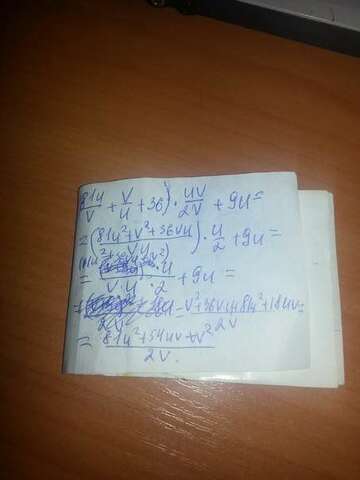 81u/v + v/u + 36) · uv/2v + 9u =
= (81u²+v²+36vu / vu) · u/2 + 9u =
· u / v·u·2 + 9u =
= v²+36vu+81u²+18uv / 2v =
= 81u²+54uv+v² / 2v.